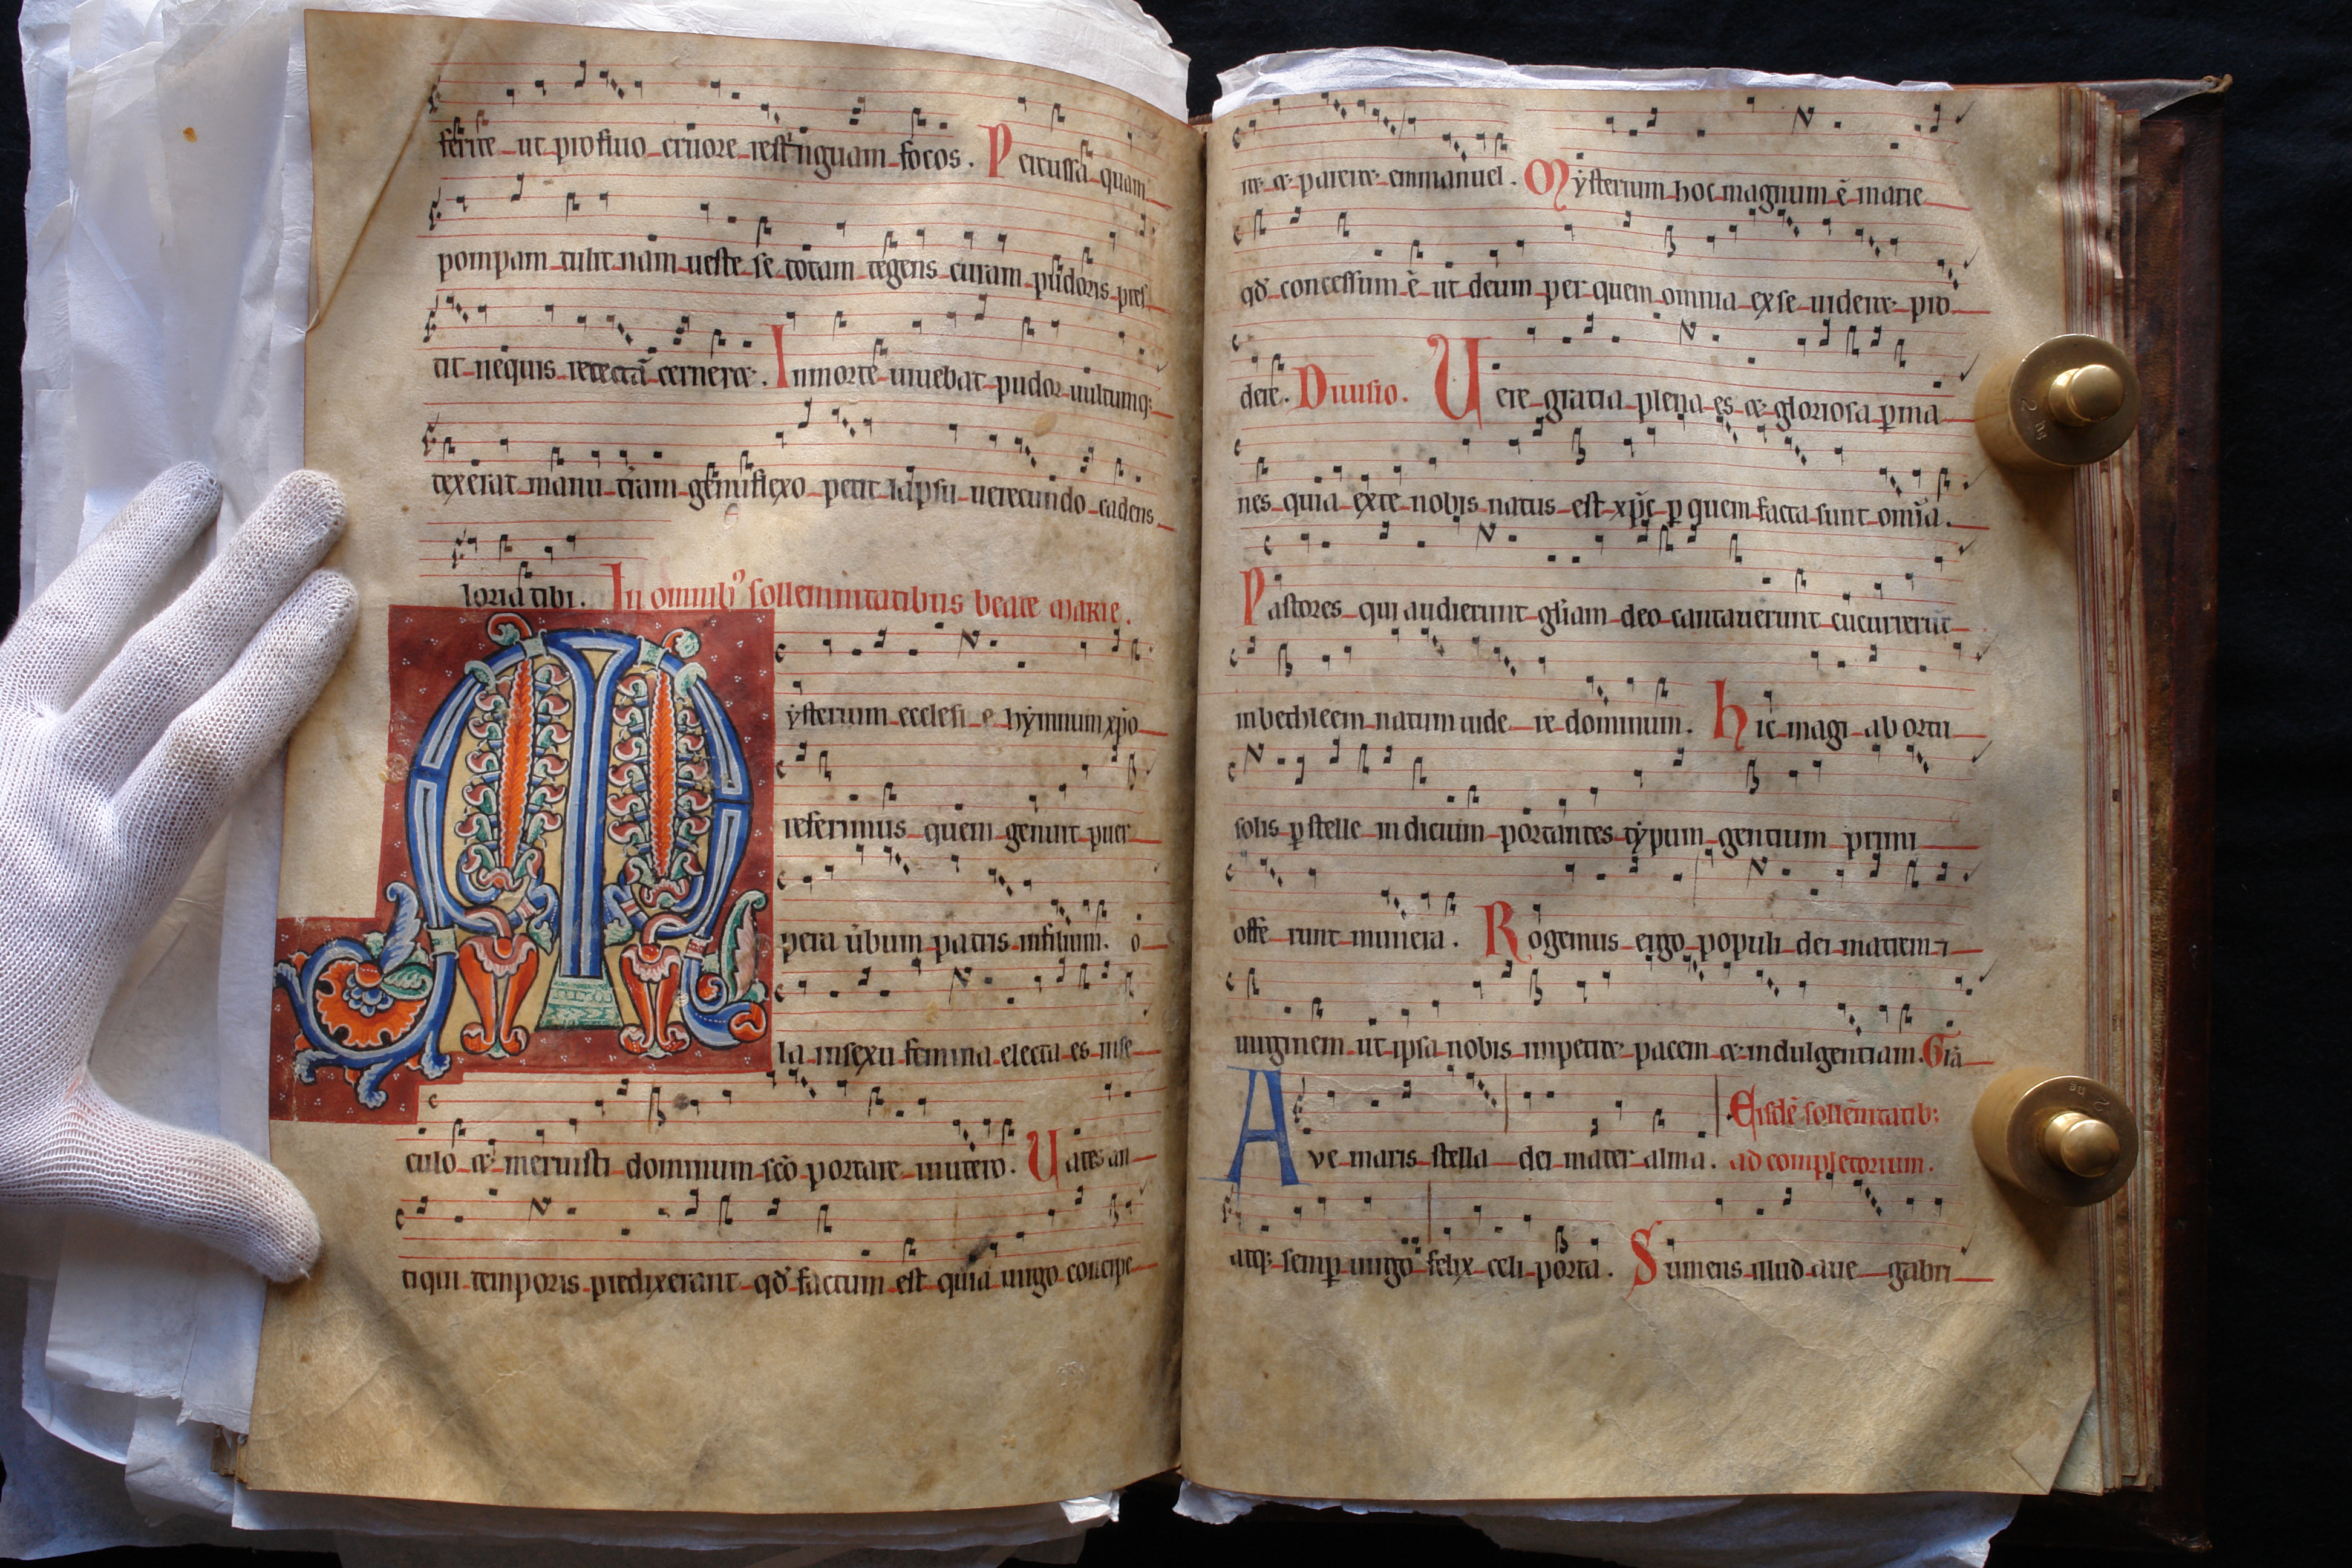 ferire ut profluo cruore restinguam focos. Percussa quam
pompam tulit nam ueste se totam tegens curam pudoris pres
tit nequis retectā cerneret. Inmorte uiuebat pudor uultumq;
texerat manu tram genuflexo petit lapsu uerecundo cadens
loria tibi. In omnibꝰ sollemnitatibus beate marie.
Mysterium ecclesie hymnum xp̄o
referimus quem genuit puer
pera uerbum patris infilium. o
la insexu femina electa es inse
culo et meruisti dominum scō portare in utero. Uates an
tiqui temporis predixerant qd̄ factum est quia uirgo concipe
ret et pareret emmanuel. Mysterium hoc magnum ē marie
qd̄ concessum ē ut deum per quem omnia exse uideret pro
dere. Diuisio. Uere gratia plena es et gloriosa ꝑma
nes quia exte nobis natus est xp̄c ꝑ quem facta sunt omia.
Pastores qui audierunt gl̄iam deo cantauerunt cucurrerūt
inbethleem natum uide re dominum. hic magi ab ortu
solis ꝑ stelle indicium portantes typum gentium primi
offe runt munera. Rogemus ergo populi dei matrem ⁊
uirginem ut ipsa nobis impetret pacem et indulgentiam. Glā
Eisdē sollēnitatib;
Ave maris stella dei mater alma. ad completorium.
atq; semꝑ uirgo felix celi porta. Sumens illud aue gabri
2 ng
2 ng